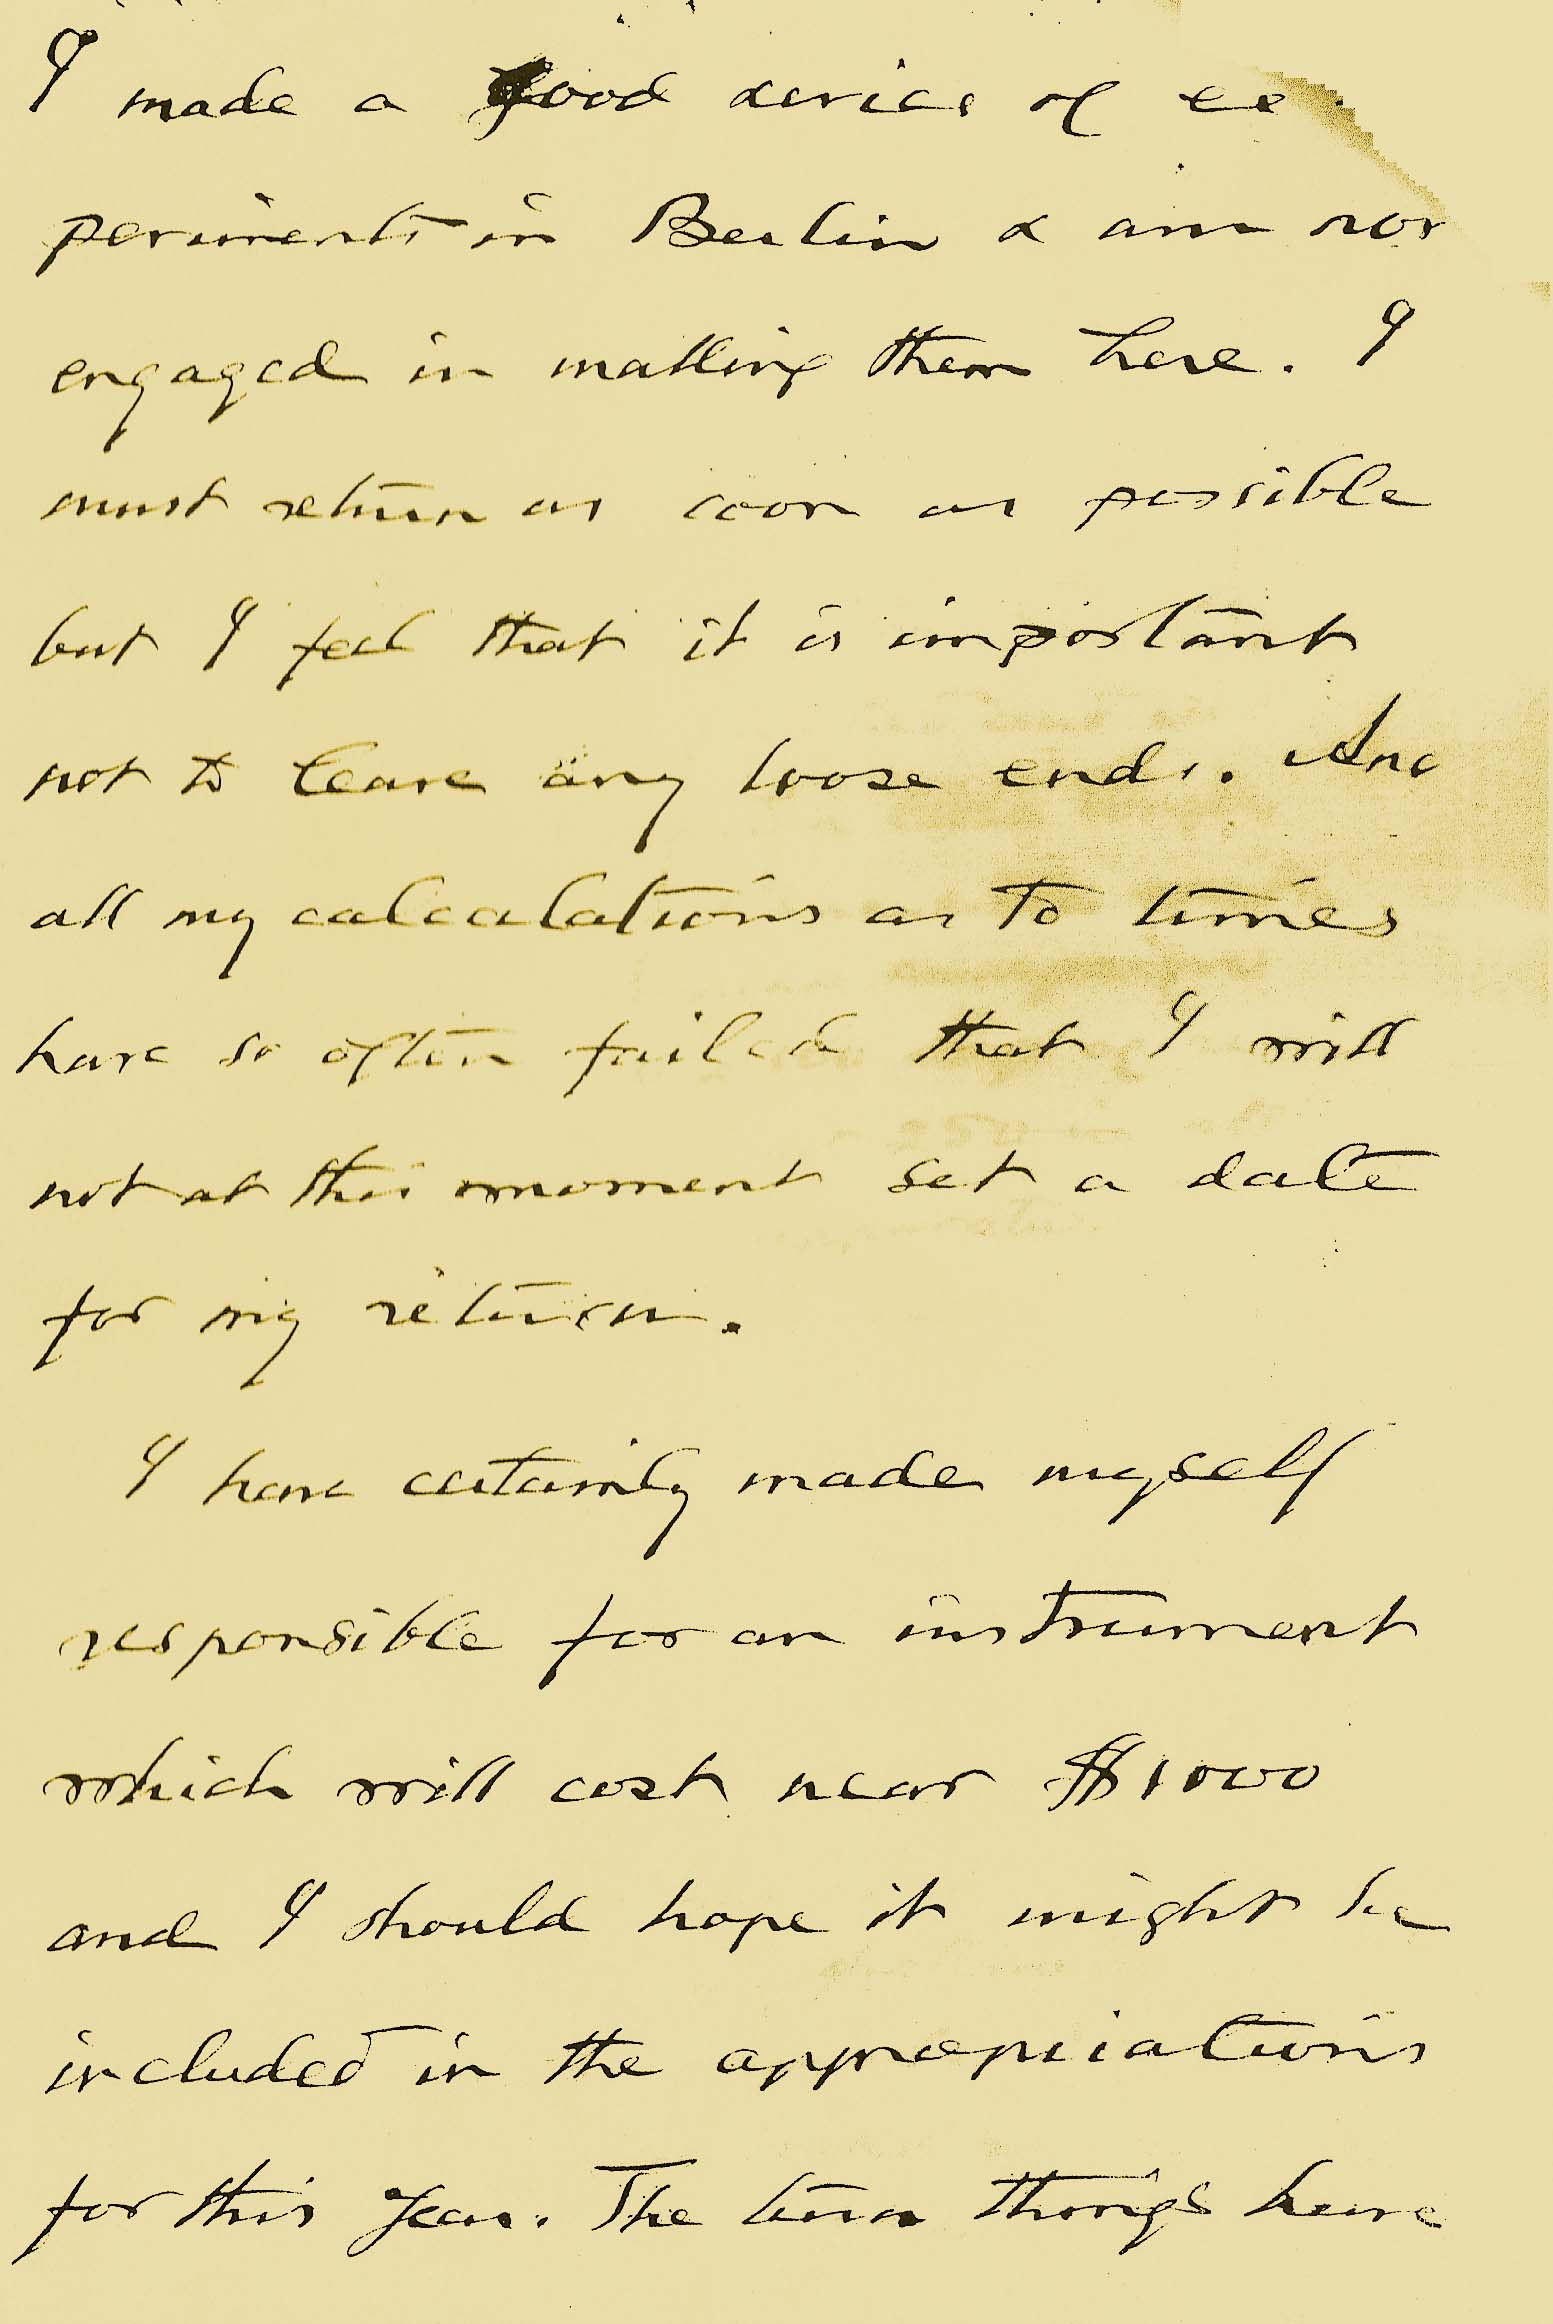 I made a good series of ex
periments in Berlin & am now
engaged in making them here. I
must return as soon as possible
but I feel that it is important
not to leave any loose ends. And
all my calculations as to times
have so often failed that I will
not at this moment set a date
for my return.
I have certainly made myself
responsible for an instrument
which will cost near $1000
and I should hope it might be
included in the appropriations
for this year. The turn things have